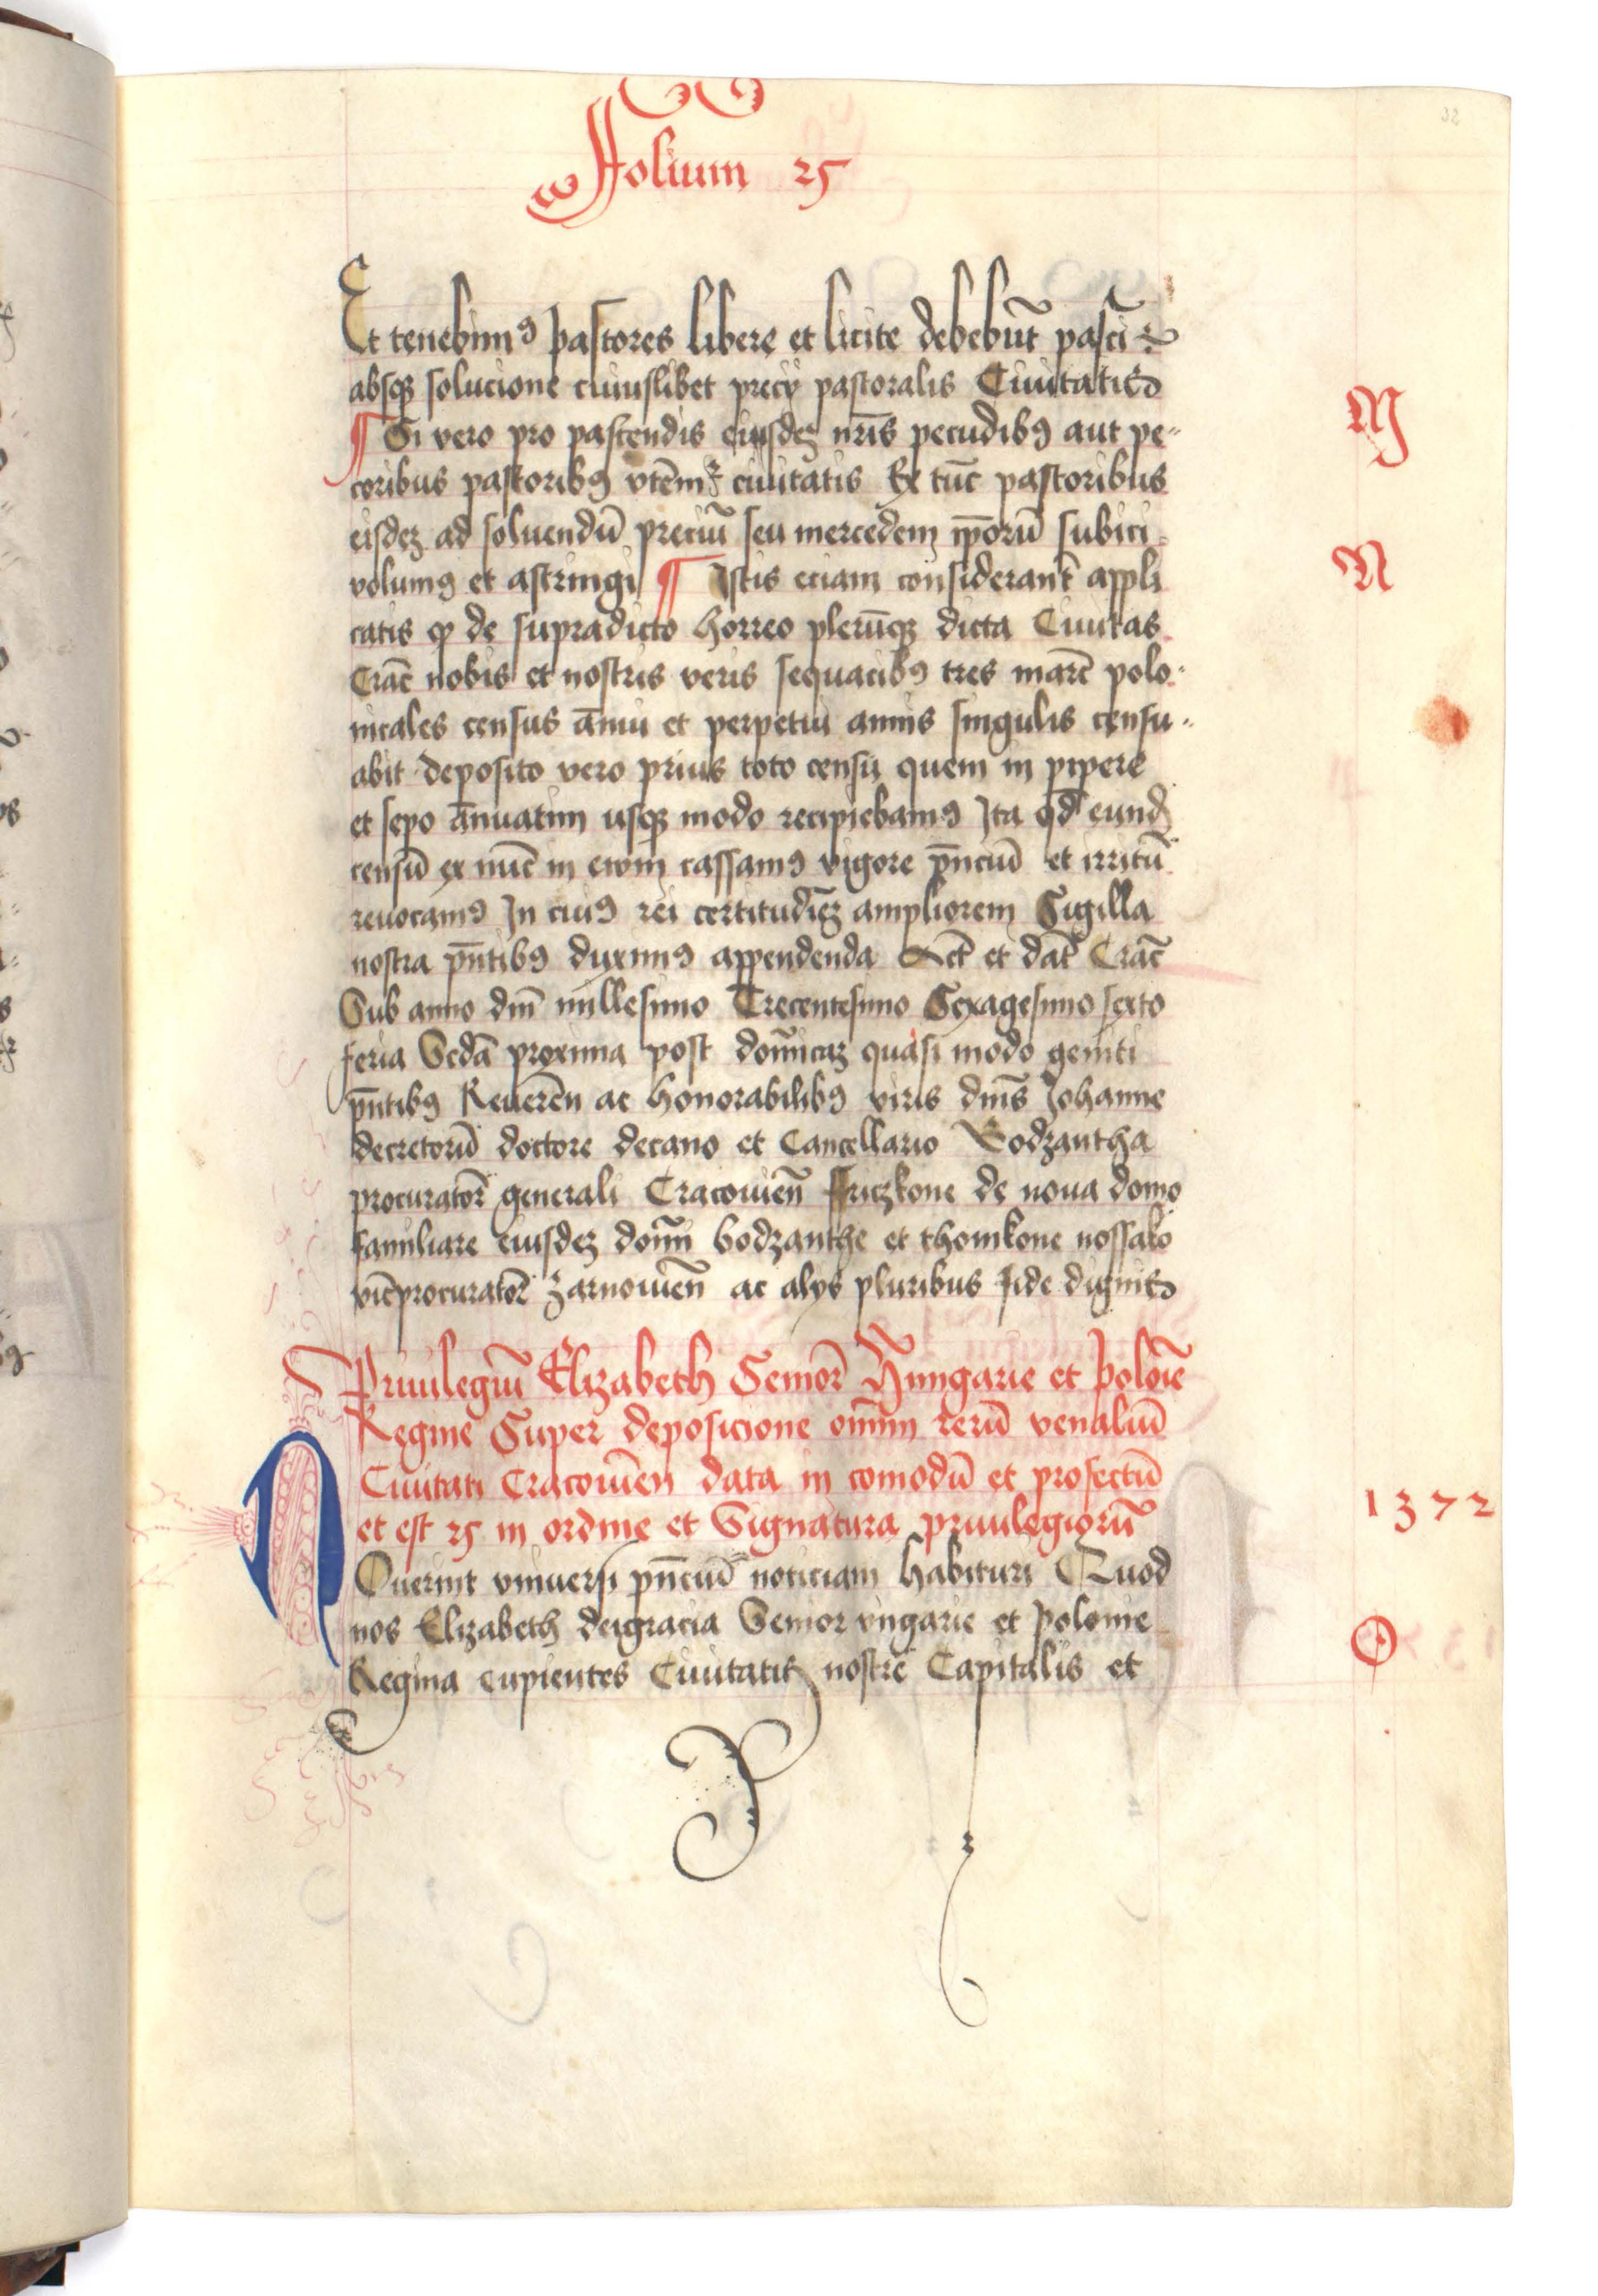 32
Folium 25
Et tenebimꝰ pastores libere et licite debebūt pasci
absqꝫ solucione cuiuslibet precij pastoralis Ciuitatis
¶ Si vero pro pascendis eiusdeꝫ nr̄is pecudibꝰ aut pe-
M
coribus pastoribꝰ vtēmr̉ ciuitatis Ex tūc pastoribus
eisdeꝫ ad soluendū preciū seu mercedem ip̄orū subici
volumꝰ et astringi ¶ Istis eciam considerant̉ appli
N
catis ꝙ de supradicto horreo plerūqꝫ dicta Ciuitas
Crac̄ nobis et nostris veris sequacibꝰ tres marc̄ polo-
nicales census ānui et perpetui annis singulis censu-
abit deposito vero prius toto censu quem in pipere
et sepo ānuatim usqꝫ modo recipiebamꝰ Ita qd̓ eund̓
censū ex nūc in ewm cassamꝰ vigore pn̄ciū et irritū
reuocamꝰ In cuiꝰ rei certitudīeꝫ ampliorem Sigilla
nostra pn̄tibꝰ duximꝰ appendenda Act̄ et dat̄ Crac̄
Sub anno dn̄i millesimo Trecentesimo Sexagesimo sexto
feria Scd̄a proxima post domīcaꝫ quasi modo geniti
pn̄tibꝰ Reuerēn ac honorabilibꝰ viris dn̄is Johanne
decretorū doctore decano et Cancellario Bodzantha
procurator̄ generali Cracouien̄ Friczkone de noua domo
familiare eiusdeꝫ domī bodzanthe et thomkone nossalo
vic̄procurator̄ Zarnouien̄ ac alijs pluribus fide dignis
Priuilegiū Elizabeth Senior̄ Hūngarie et polōie
Regine Super deposicione om̄im rerū venaliū
Ciuitati Cracouien̄ data in comodū et profectū
et est 25 in ordine et Signatura priuilegiorū
1372
Nouerint vniuersi pn̄ciū noticiam habituri Quod
nos Elizabeth deigracia Senior vngarie et polonie
O
Regina cupientes Ciuitatis nostre Capitalis et